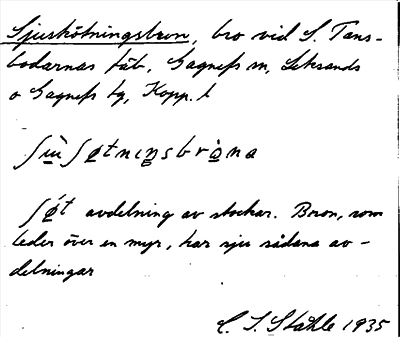 Sjuskötningsbron, bro vid S. Tans-
bodarnas fäb, Gagnefs sn, Leksands
o Gagnefs tg, Kopp. l
ʃɯ̀ʃøtnɪŋsbròna
ʃøt avdelning av stockar. Broron, som
leder över en myr, har sju sådana av-
delningar
C. I. Ståhle 1935